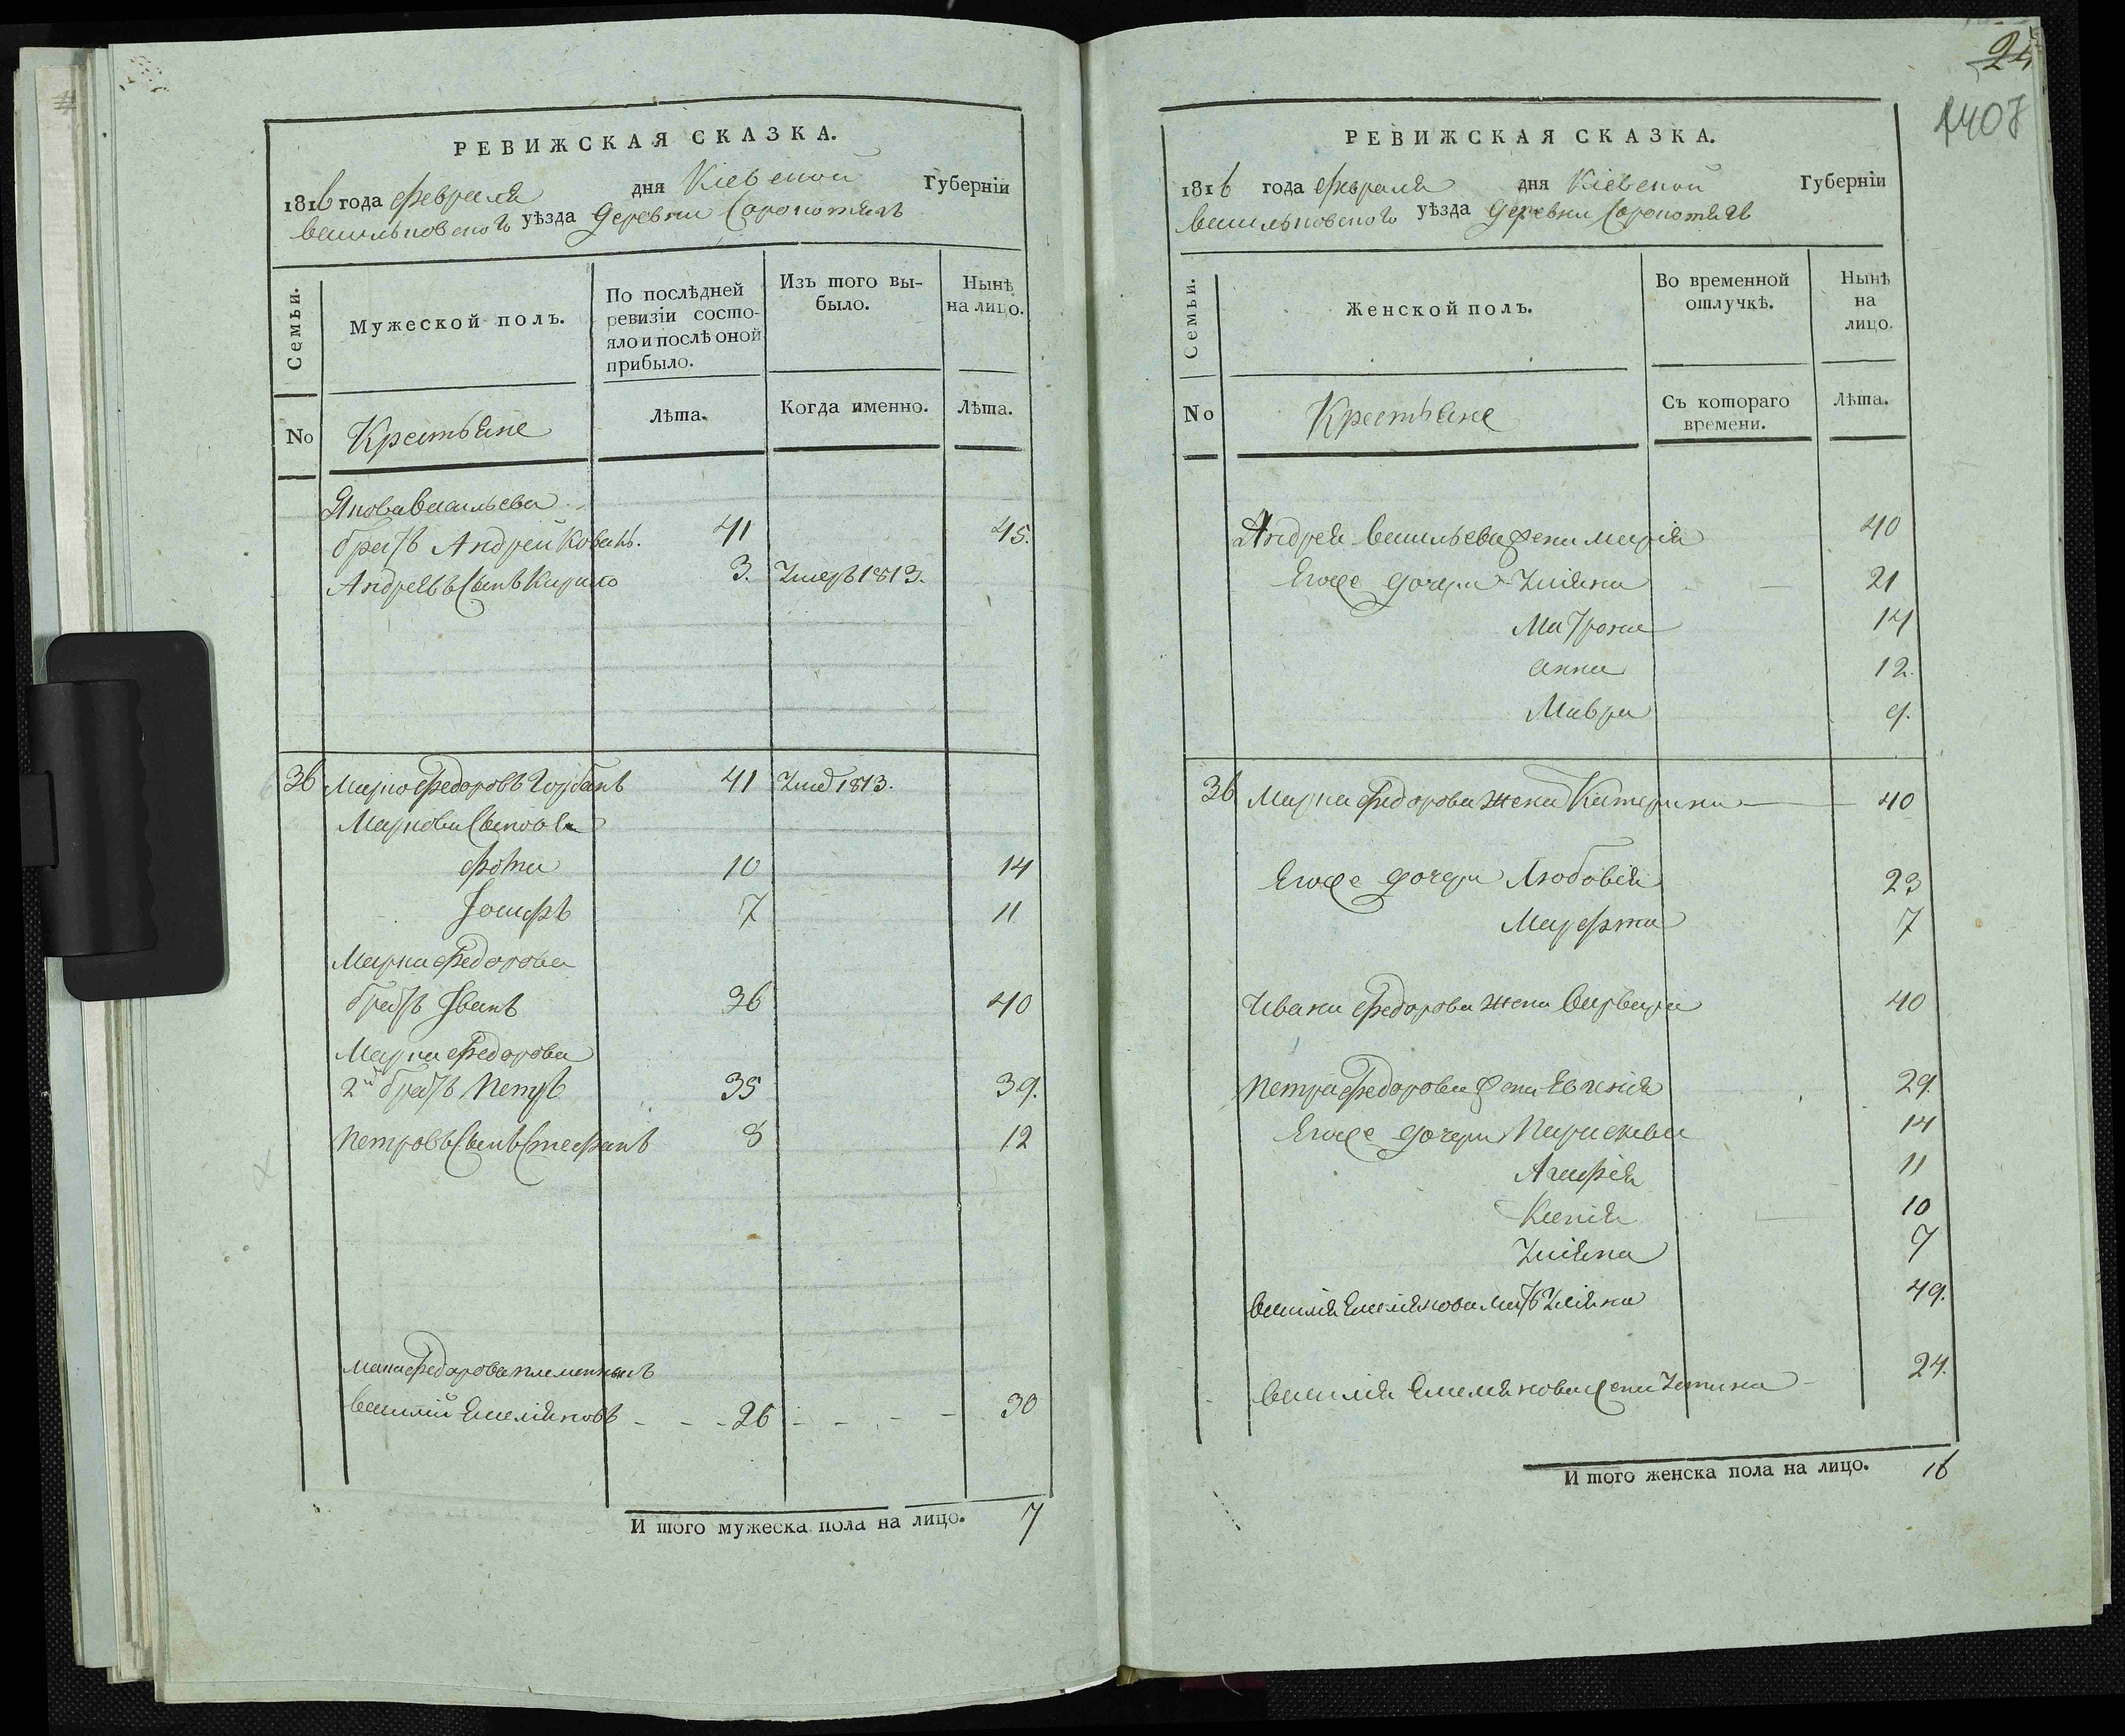 24
1407
РЕВИЖСКАЯ СКАЗКА.
1816 года февраля дня Кіевской Губерніи
Васильковского уѣзда деревни Соропотягъ
Семьи.
Мужеской полъ.
По послѣдней ревизіи состо-
яло и послѣ оной прибыло.
Изъ того вы-
было.
Нынѣ на лицо.
No
Крестьяне
Лѣта.
Когда именно.
Лѣта.
Якова Васильева
братъ Андрей Коваль. 41 45.
Андреевъ Сынъ Кирило 3. Умеръ 1813.
36 Марко Федоровъ 41 Умер 1813.
Маркови Сыновя
Фома 10 14
Іосифъ 7 11
Марка Федорова
братъ Іванъ 36 40
Марка Федорова
2й братъ Петръ 35 39.
Петровъ Сынъ Стефанъ 8 12
Марка Федорова племенникъ
Василій Емеліяновъ - - - 26 - - - - 30
И того мужеска пола на лицо. 7
РЕВИЖСКАЯ СКАЗКА.
1816 года февраля дня Кіевской Губерніи
Васильковского уѣзда деревни Соропотягъ
Семьи.
Женской полъ.
Во временной
отлучкѣ.
Нынѣ
на
лицо.
No
Крестьяне
Съ котораго
времени.
Лѣта.
Андрея Васильева жена Марія 40
Егоже дочери Уліяна 21
Матрона 14
Анна 12.
Мавра 9.
36 Марка Федорова жена Катерина 40
Егоже дочери Любовія 23
Марфта 7
Ивана Федорова жена Варвара 40
Петра Федорова жена Евгенія 29.
Егоже дочери Параскева 14
Агафія 11
Ксенія 10
Уліяна 7
Василія Емеліянова мать Уліяна 49.
Василія Емелянова жена Устина 24.
И того женска пола на лицо. 16